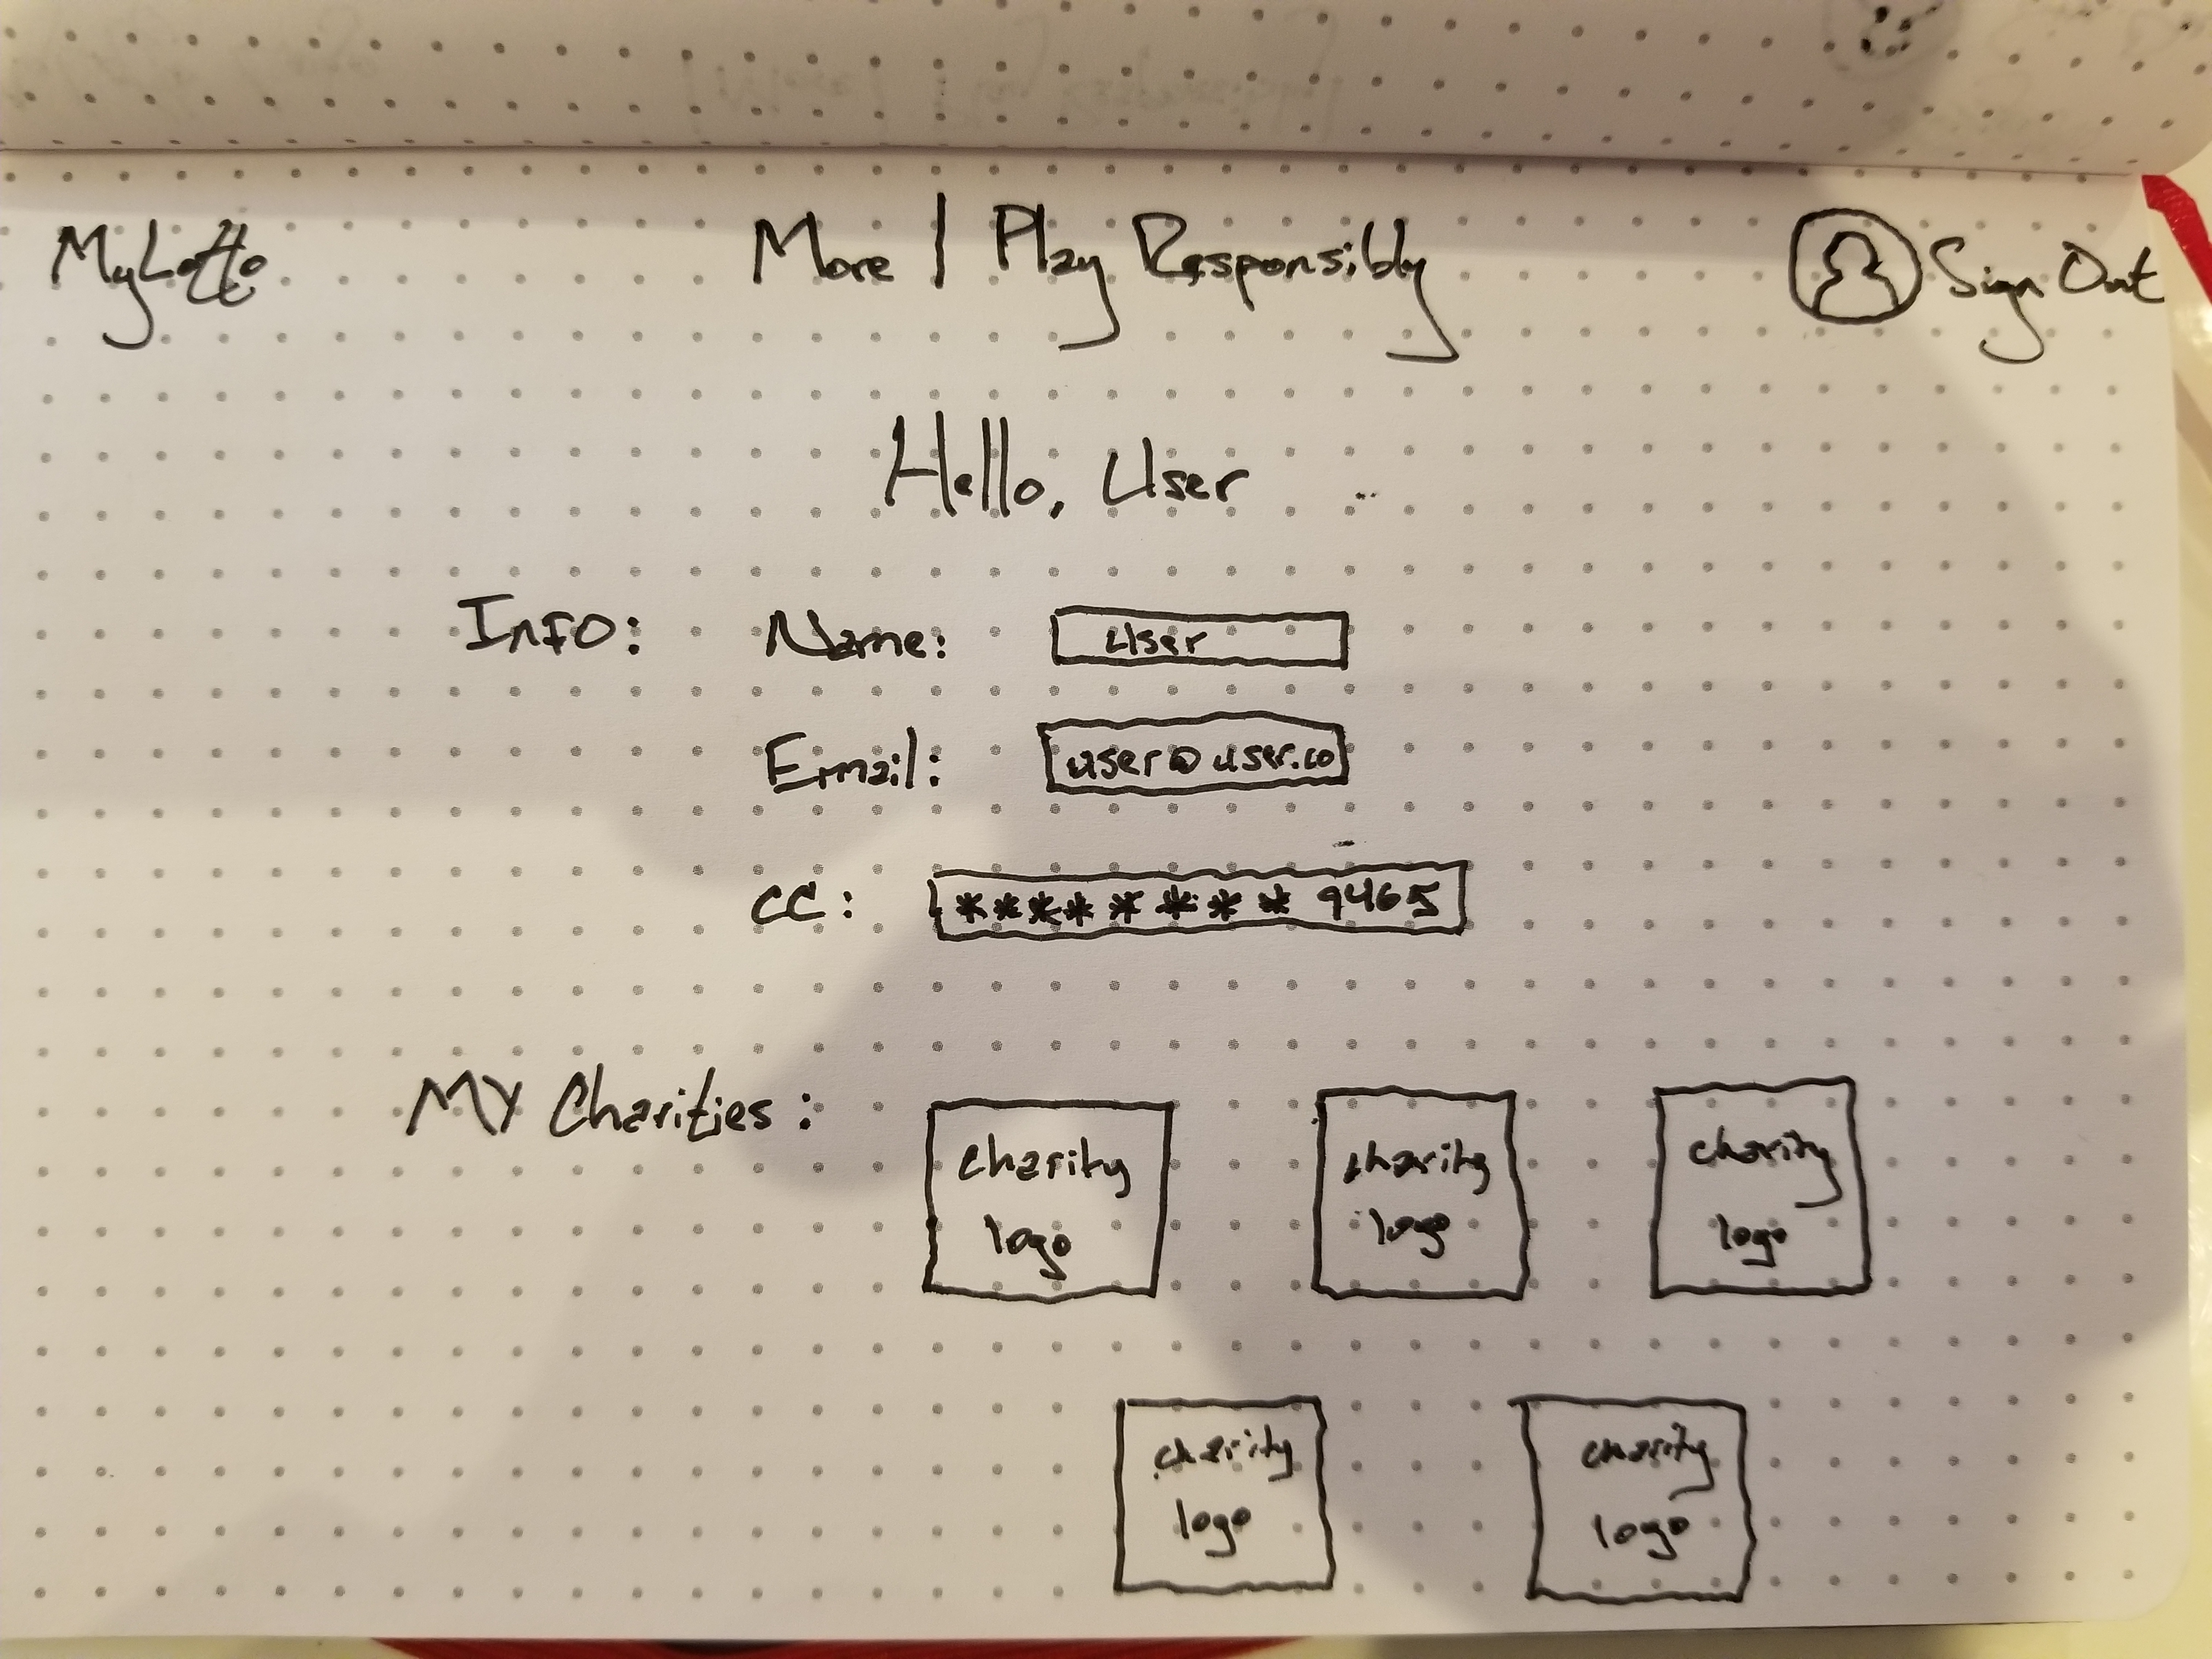 MyLotto More | Play Responsibly Sign Out
Hello, User
Info: Name: User
Email: user@user.co
CC: ********9465
My Charities:
charity charity charity
logo logo logo
charity charity
logo logo